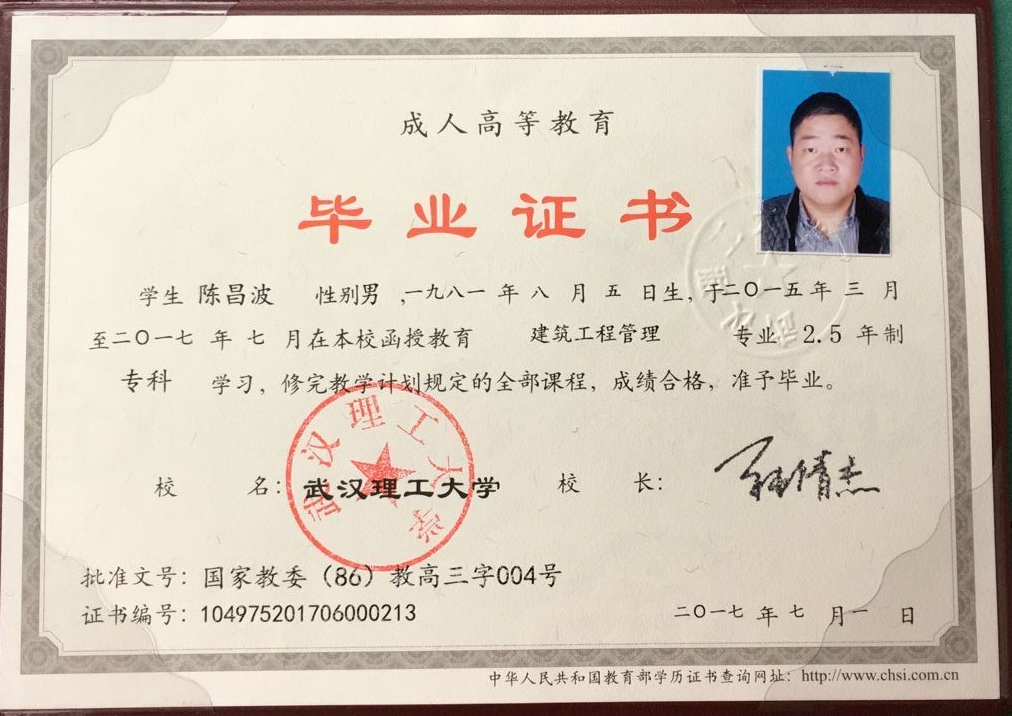 成人高等教育
毕业证书
学生 陈昌波 性别男 ,一九八一 年 八 月 五 日生, 于二〇一五年 三 月
至二〇一七 年 七 月在本校函授教育 建筑工程管理 专业 2.5 年制
专科 学习, 修完教学计划规定的全部课程, 成绩合格, 准予毕业。
武汉理工大学
校 名: 武汉理工大学 校 长:
批准文号: 国家教委 (86) 教高三字004号
证书编号: 104975201706000213 二〇一七 年 七 月 一 日
中华人民共和国教育部学历证书查询网址: http://www.chsi.com.cn